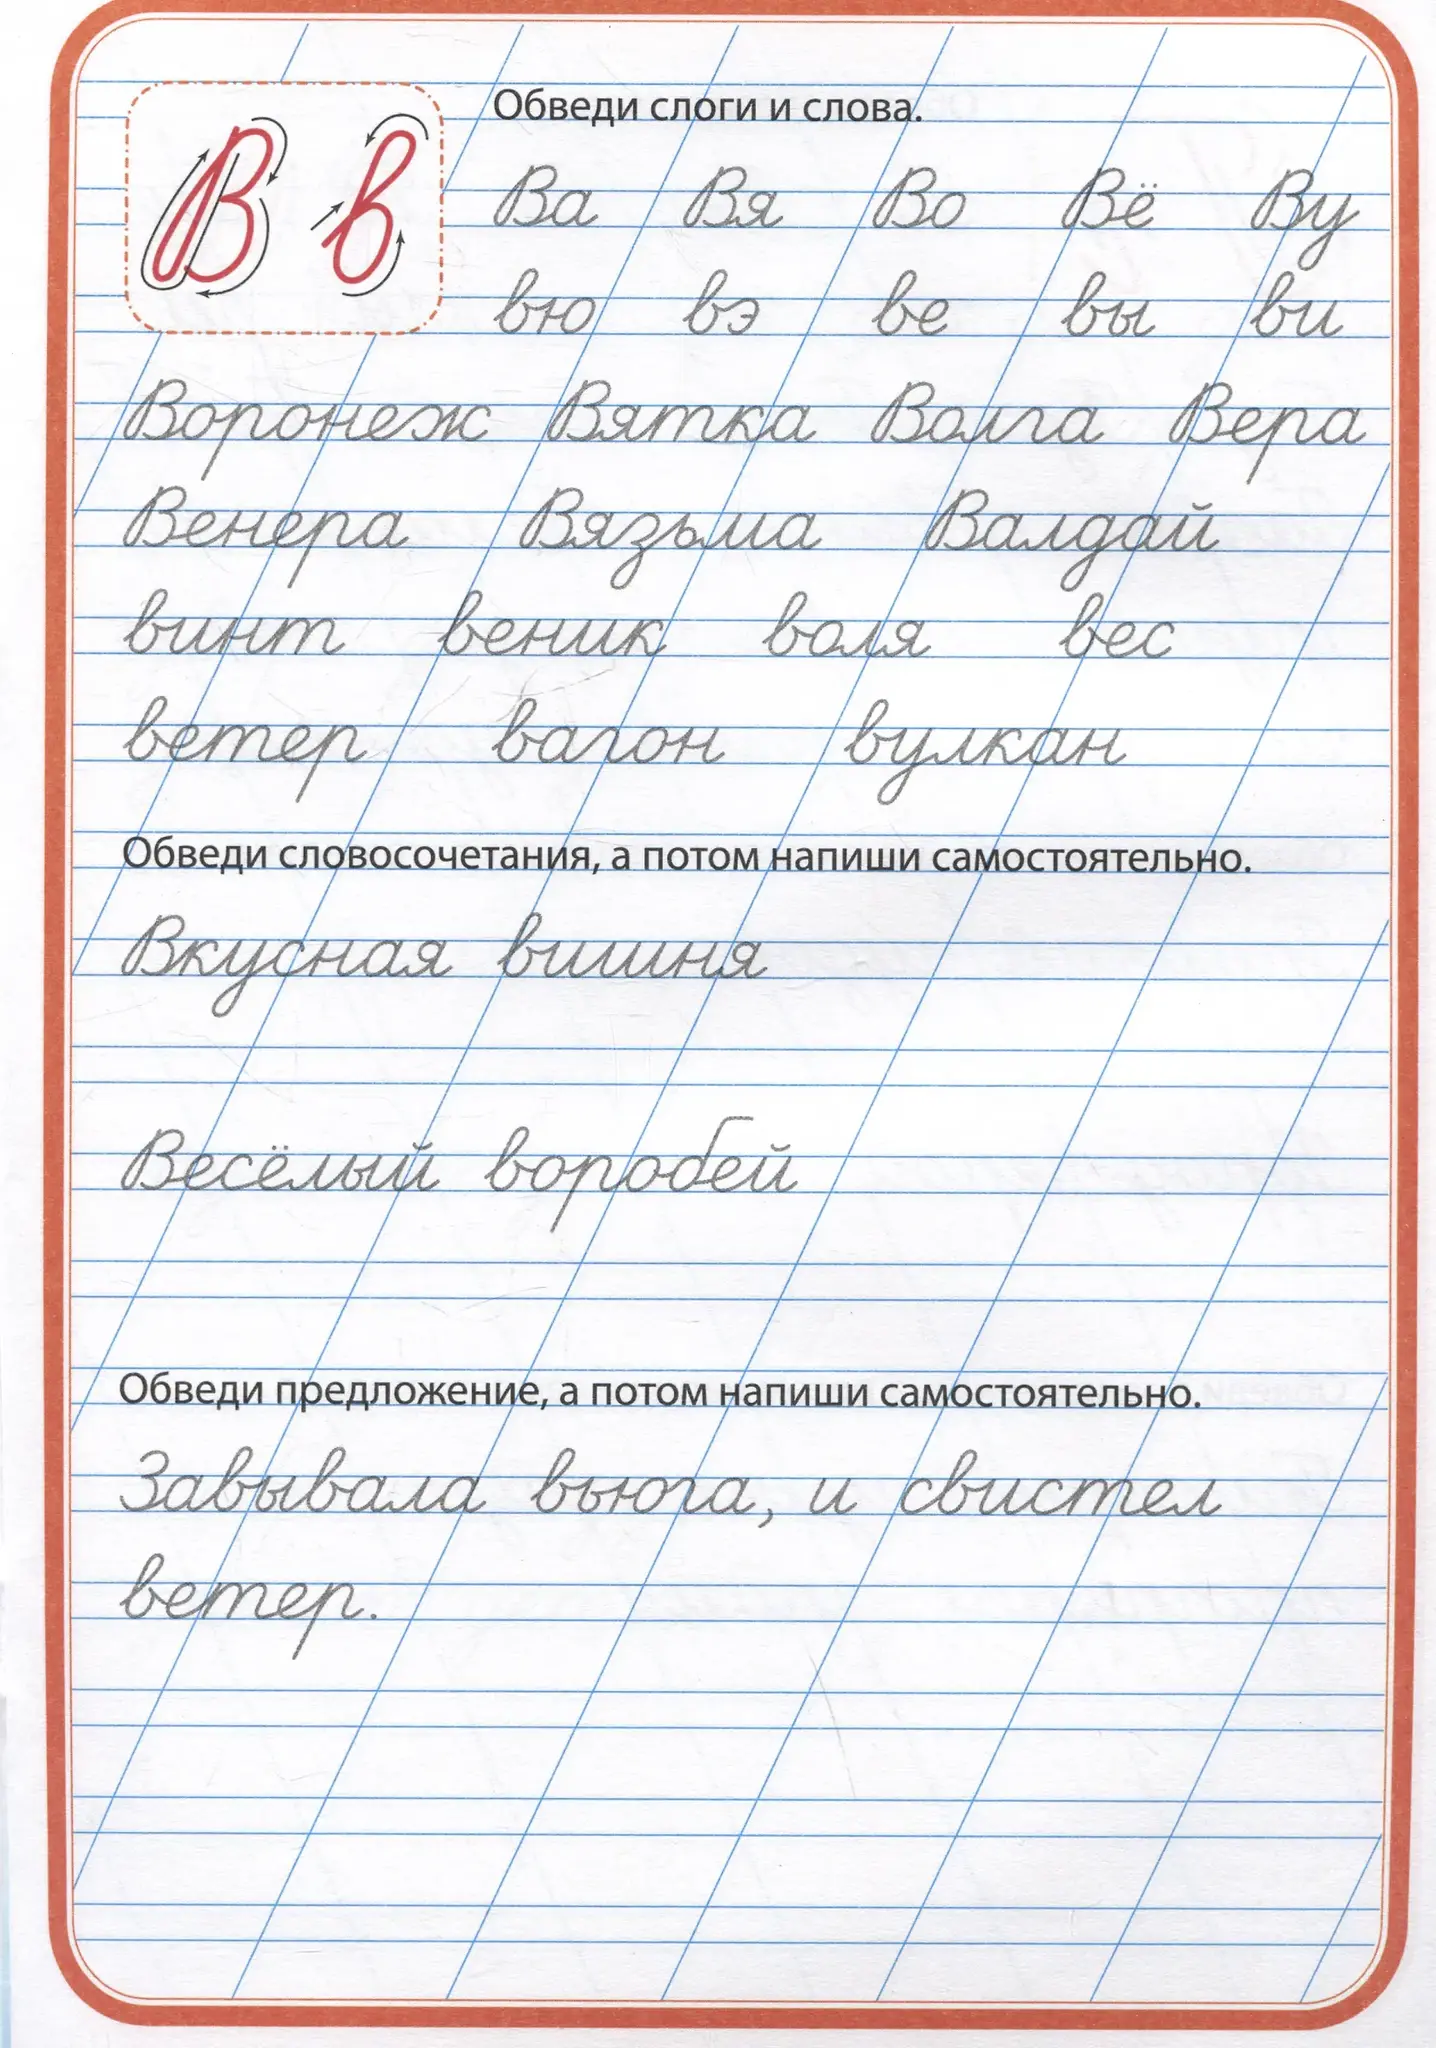 В в
Обведи слоги и слова.
Ва Вя Во Вё Ву
вю вэ ве вы ви
Воронеж Вятка Волга Вера
Венера Вязьма Валдай
винт веник воля вес
ветер вагон вулкан
Обведи словосочетания, а потом напиши самостоятельно.
Вкусная вишня
Весёлый воробей
Обведи предложение, а потом напиши самостоятельно.
Завывала вьюга, и свистел
ветер.